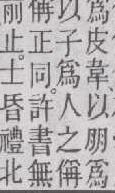 爲皮韋以朋爲
以子爲人之偁
偁正同許書無
止士昏禮北